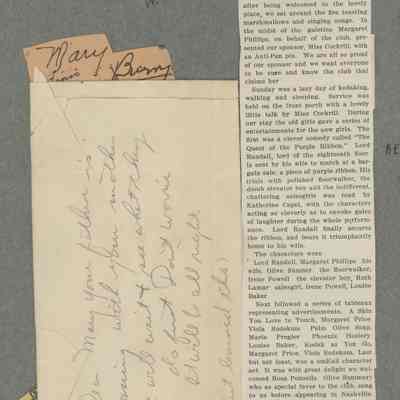 Mary
Bunny
Mary your father is
coming with your mother
will wait & see what they
do first Don't worrie
it will b all right
after being welcomed to the lovely
place, we sat around the fire toasting
marshmallows and singing songs. In
the midst of the gaieties Margaret
Phillips, on behalf of the club, pre-
sented our sponsor, Miss Cockrill, with
an Anti-Pan pin. We are all so proud
of our sponsor and we want everyone
to be sure and know the club that
claims her
Sunday was a lazy day of kodaking,
walking and sleeping. Service was
held on the front porch with a lovely
little talk by Miss Cockrill. During
our stay the old girls gave a series of
entertainments for the new girls. The
first was a clever comedy called "The
Quest of the Purple Ribbon." Lord
Randall, lord of the eighteenth floor
is sent by his wife to match at a bar-
gain sale, a piece of purple ribbon. His
trials with polished floorwalker, the
dumb elevator boy and the indifferent,
chattering salesgirls was read by
Katherine Capel, with the characters
acting so cleverly as to envoke gales
of laughter during the whole pyrform-
ance. Lord Randall finally secures
the ribbon, and bears it triumphantly
home to his wife.
The characters were
Lord Randall, Margaret Phillips his
wife, Olive Sumner the floorwalker,
Irene Powell the elevator boy, Ruth
Lamar salesgirl, Irene Powell, Louise
Baker
Next followed a series of tableaux
representing advertisements. A Skin
You Love to Touch, Margaret Price,
Viola Radokum Palm Olive Soap,
Marie Pregler Phoenix Hosiery
Louise Baker, Kodak as You Go,
Margaret Price, Viola Radokum. Last
but not least, was a
It was with great delight we wel-
comed Rosa Ponselle (Olive Sumner)
who as special favor to the club, sang
to us before appearing in Nashville